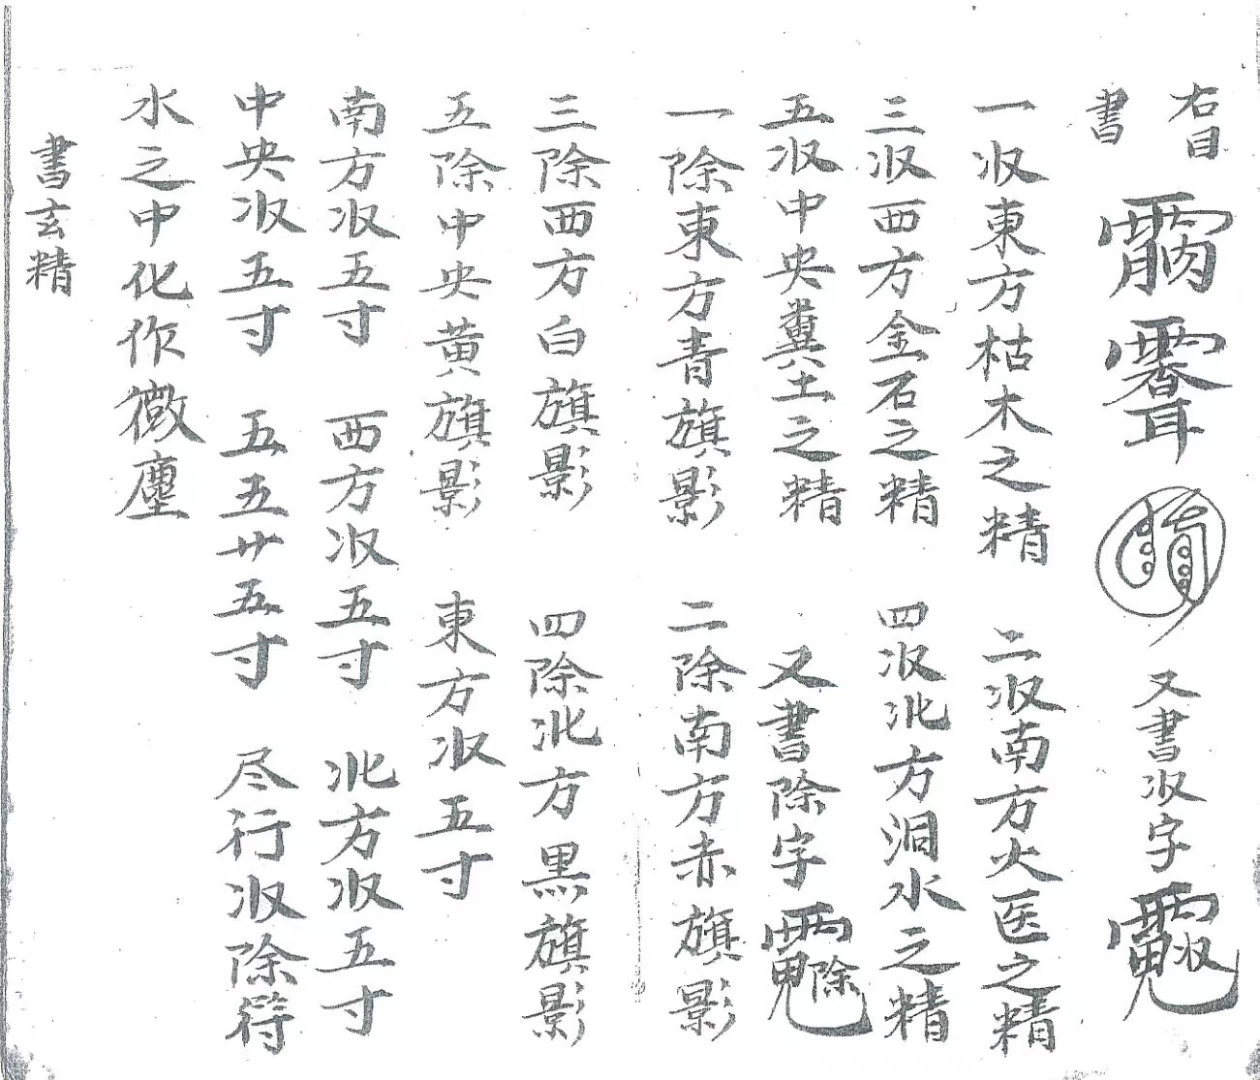 右目
書 又書収字
一収東方枯木之精 二収南方火医之精
三収西方金石之精 四収北方洞水之精
五収中央糞土之精 又書除字
一除東方青旗影 二除南方赤旗影
三除西方白旗影 四除北方黑旗影
五除中央黄旗影 東方収五寸
南方収五寸 西方収五寸 北方収五寸
中央収五寸 五五廿五寸 尽行収除
水之中化作微塵
書玄精